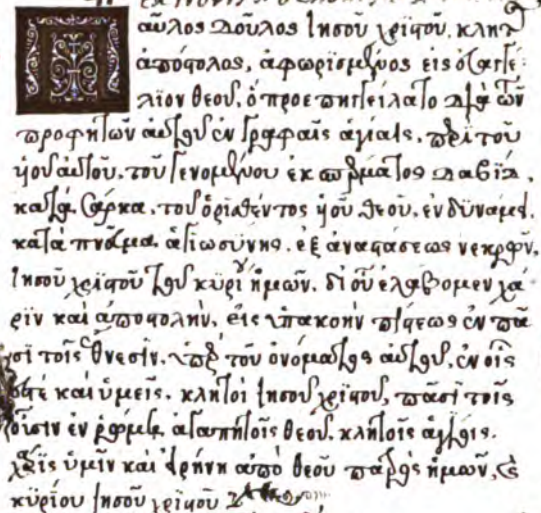 Παῦλος δοῦλος Ἰησοῦ χριστοῦ, κλητὸς
ἀπόστολος, ἀφωρισμένος εἰς εὐαγγέ-
λιον θεοῦ, ὃ προεπηγγείλατο διὰ τῶν
προφητῶν αὐτοῦ ἐν γραφαῖς ἁγίαις, περὶ τοῦ
υἱοῦ αὐτοῦ, τοῦ γενομένου ἐκ σπέρματος δαβὶδ,
κατὰ σάρκα, τοῦ ὁρισθέντος υἱοῦ θεοῦ, ἐν δυνάμει,
κατὰ πνεῦμα ἁγιωσύνης, ἐξ ἀναστάσεως νεκρῶν,
Ἰησοῦ χριστοῦ τοῦ κυρίου ἡμῶν, δι οὗ ἐλάβομεν χά
ριν καὶ ἀποστολὴν, εἰς ὑπακοὴν πίστεως ἐν πᾶ
σι τοῖς ἔθνεσιν, ὑπὲρ τοῦ ὀνόματος αὐτοῦ, ἐν οἷς
ἐστὲ καὶ ὑμεῖς, κλητοὶ Ἰησοῦ χριστοῦ, πᾶσι τοῖς
οὖσιν ἐν ῥώμῃ ἀγαπητοῖς θεοῦ, κλητοῖς ἁγίοις.
χάρις ὑμῖν καὶ εἰρήνη ἀπὸ θεοῦ πατρὸς ἡμῶν, καὶ
κυρίου Ἰησοῦ χριστοῦ